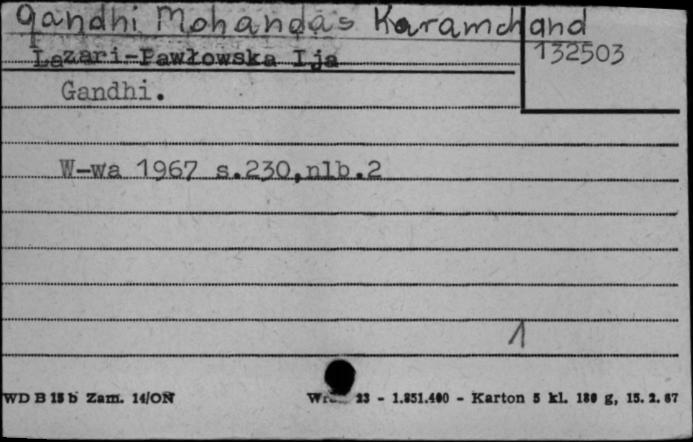 Gandhi Mohandas Karamchand
132503
Lazari-Pawłowska Ija
Gandhi.
W-wa 1967 s.230,nlb.2
1
WD B 15 b Zam. 14/ON
23 - 1.851.400 - Karton 5 kl. 180 g, 15. 2. 67